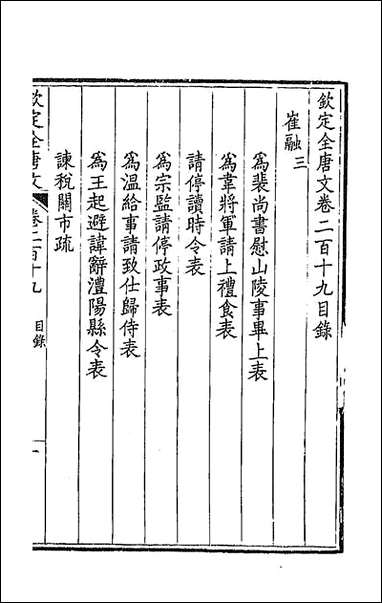 欽定全唐文卷二百十九目錄
崔融三
為裴尚書慰山陵事畢上表
為韋將軍請上禮食表
請停讀時令表
為宗監請停政事表
為溫給事請致仕歸侍表
為王起避諱辭澧陽縣令表
諫稅關市疏
欽定全唐文 卷二百十九 目錄 一